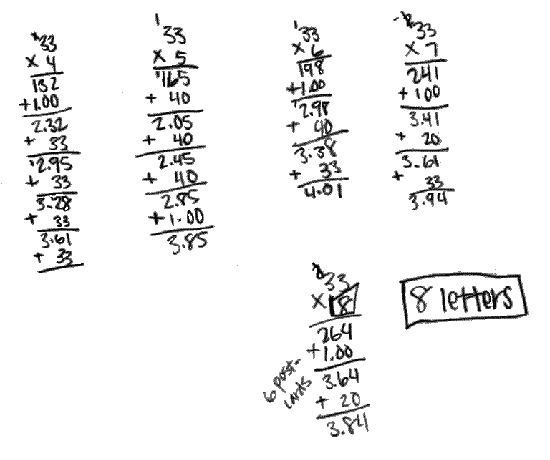 33
× 4
132
+1.00
2.32
+ 33
2.95
+ 33
3.28
+ 33
3.61
+ 33
1
33
× 5
165
+ 40
2.05
+ 40
2.45
+ 40
2.85
+1.00
3.85
1
33
× 6
198
+1.00
2.98
+ 40
3.38
+ 33
4.01
2
33
× 7
241
+ 100
3.41
+ 20
3.61
+ 33
3.94
2
33
× 8
264
+1.00
3.64
+ 20
3.84
6 post-
cards
8 letters